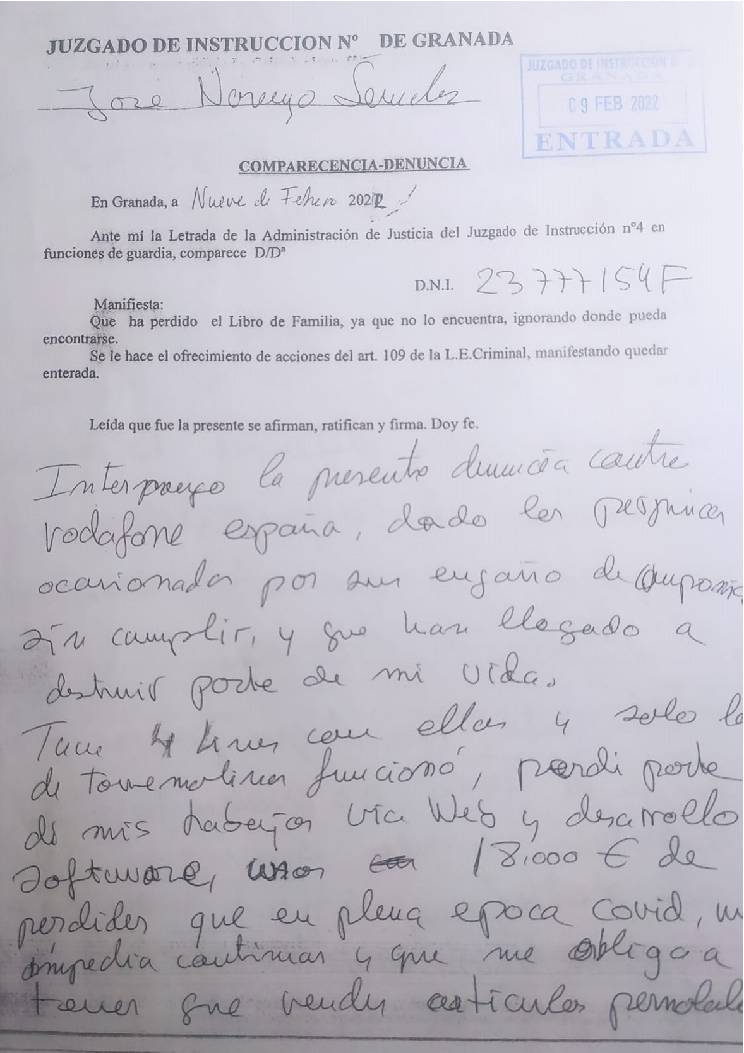 JUZGADO DE INSTRUCCION Nº DE GRANADA
JUZGADO DE INSTRUCCION
GRANADA
09 FEB 2022
ENTRADA
Jose
COMPARECENCIA-DENUNCIA
En Granada, a Nueve de Febrero 2022
Ante mí la Letrada de la Administración de Justicia del Juzgado de Instrucción nº4 en
funciones de guardia, comparece D/Dª
D.N.I. 23777154F
Manifiesta:
Que ha perdido el Libro de Familia, ya que no lo encuentra, ignorando donde pueda
encontrarse.
Se le hace el ofrecimiento de acciones del art. 109 de la L.E.Criminal, manifestando quedar
enterada.
Leída que fue la presente se afirman, ratifican y firma. Doy fe.
Interpongo la presente denuncia contra
vodafone españa, dado los perjuicios
ocasionados por sus engaño de
sin cumplir, y que han llegado a
destruir parte de mi vida.
Tuve 4 lineas con ellos y solo la
de torremolinos funcionó, perdi parte
de mis trabajos via Web y desarrollo
software, unos 18.000 € de
perdidas que en plena epoca covid, m
impedia continuar y que me obligo a
tener que vender articulos personal